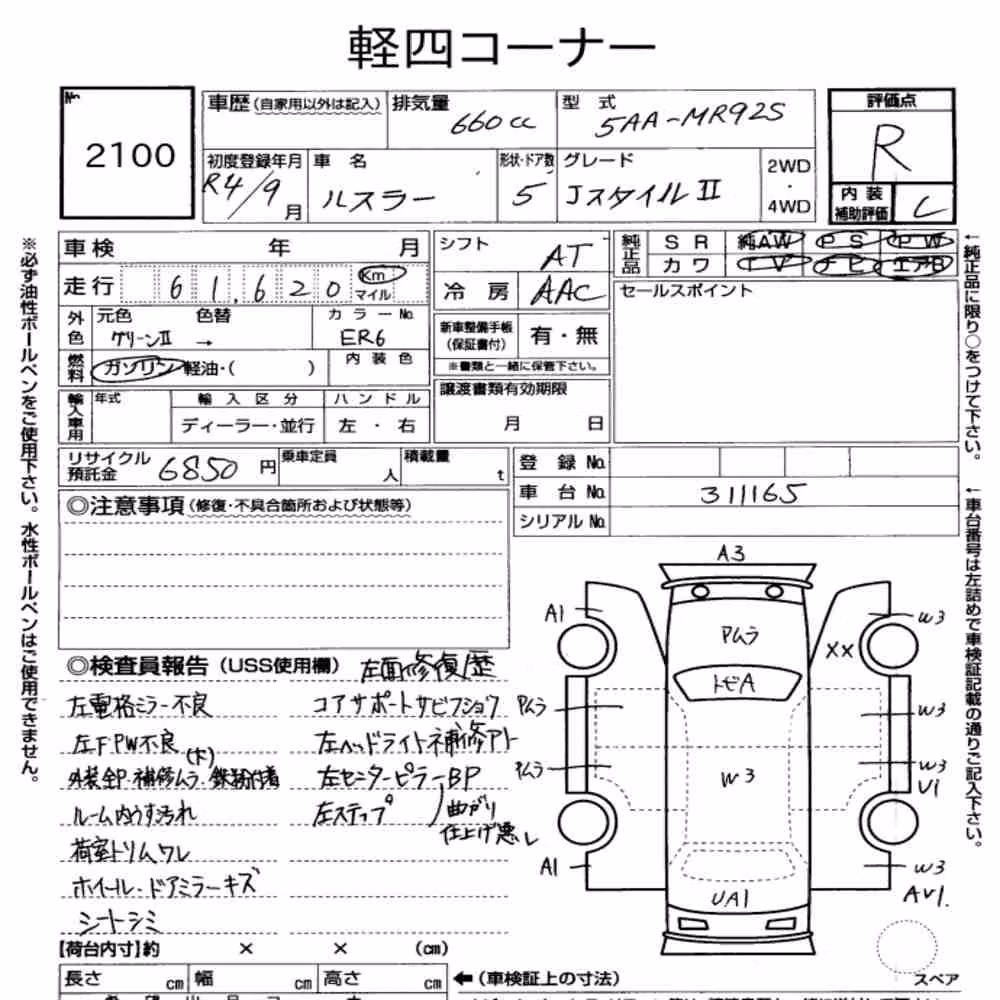 軽四コーナー
№
2100
車歴 (自家用以外は記入)
排気量
660cc
型 式
5AA-MR92S
評価点
R
初度登録年月
R4/9月
車 名
ルスラー
形状・ドア数
5
グレード
JスタイルⅡ
2WD
・
4WD
内 装
補助評価
C
車検 年 月
シフト
AT
純正品
S R 純AW P S P W
カ ワ T V ナビ エアB
走行 61,620 Km マイル
冷 房
AAC
セールスポイント
外色
元色 色替 カラー№
グリーンⅡ → ER6
新車整備手帳
(保証書付)
有・無
※書類と一緒に保管下さい。
燃料
ガソリン・軽油・( )
内 装 色
譲渡書類有効期限
月 日
輸入車用
年式
輸 入 区 分
ハ ン ド ル
ディーラー・並行
左 ・ 右
リサイクル
預託金
6850 円
乗車定員
人
積載量
t
登 録 №
車 台 №
311165
シリアル №
◎注意事項 (修復・不具合箇所および状態等)
◎検査員報告 (USS使用欄)
左面修復歴
左電格ミラー不良
コアサポートサビフショク
左FPW不良
左ヘッドライト補修アト
(大)
外装全P・補修ムラ・鉄粉付着
左センターピラーBP
ルーム内うす汚れ
左ステップ
曲がり
仕上げ悪し
荷室トリムワレ
ホイール・ドアミラーキズ
シートシミ
A3
A1
W3
Pムラ
XX
トビA
Pムラ
W3
Pムラ
W3
W3
V1
A1
W3
UA1
AV1.
スペア
【荷台内寸】約 × × (cm)
長さ cm 幅 cm 高さ cm
←(車検証上の寸法)
※必ず油性ボールペンをご使用下さい。水性ボールペンはご使用できません。
←純正品に限り○をつけて下さい。
←車台番号は左詰めで車検証記載の通りご記入下さい。